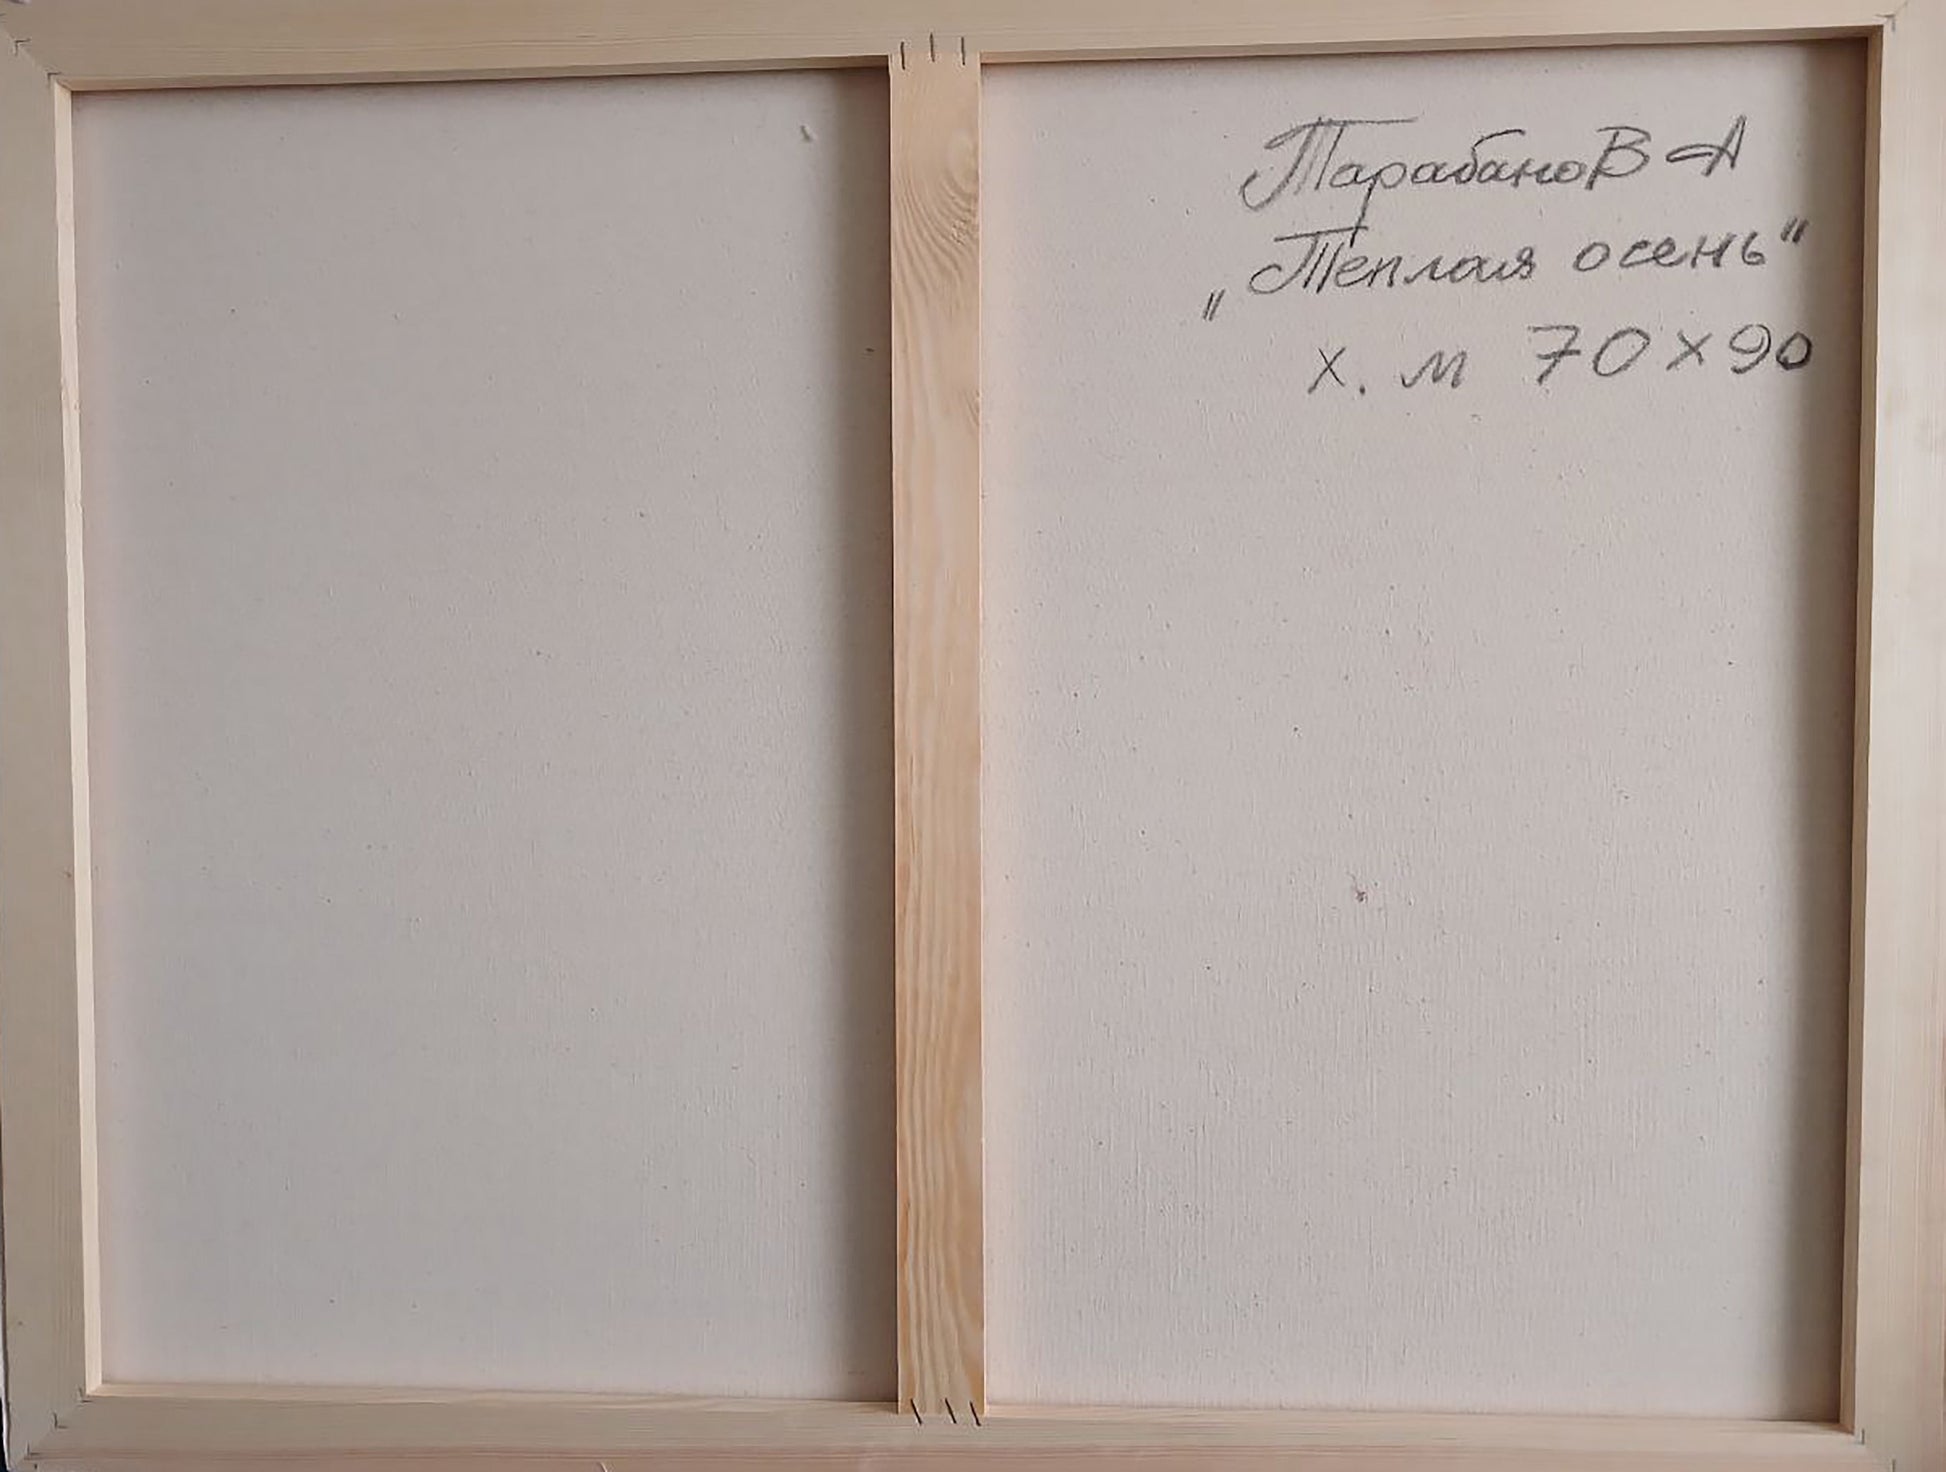 Тарабанов А
„Теплая осень“
х. м 70х90